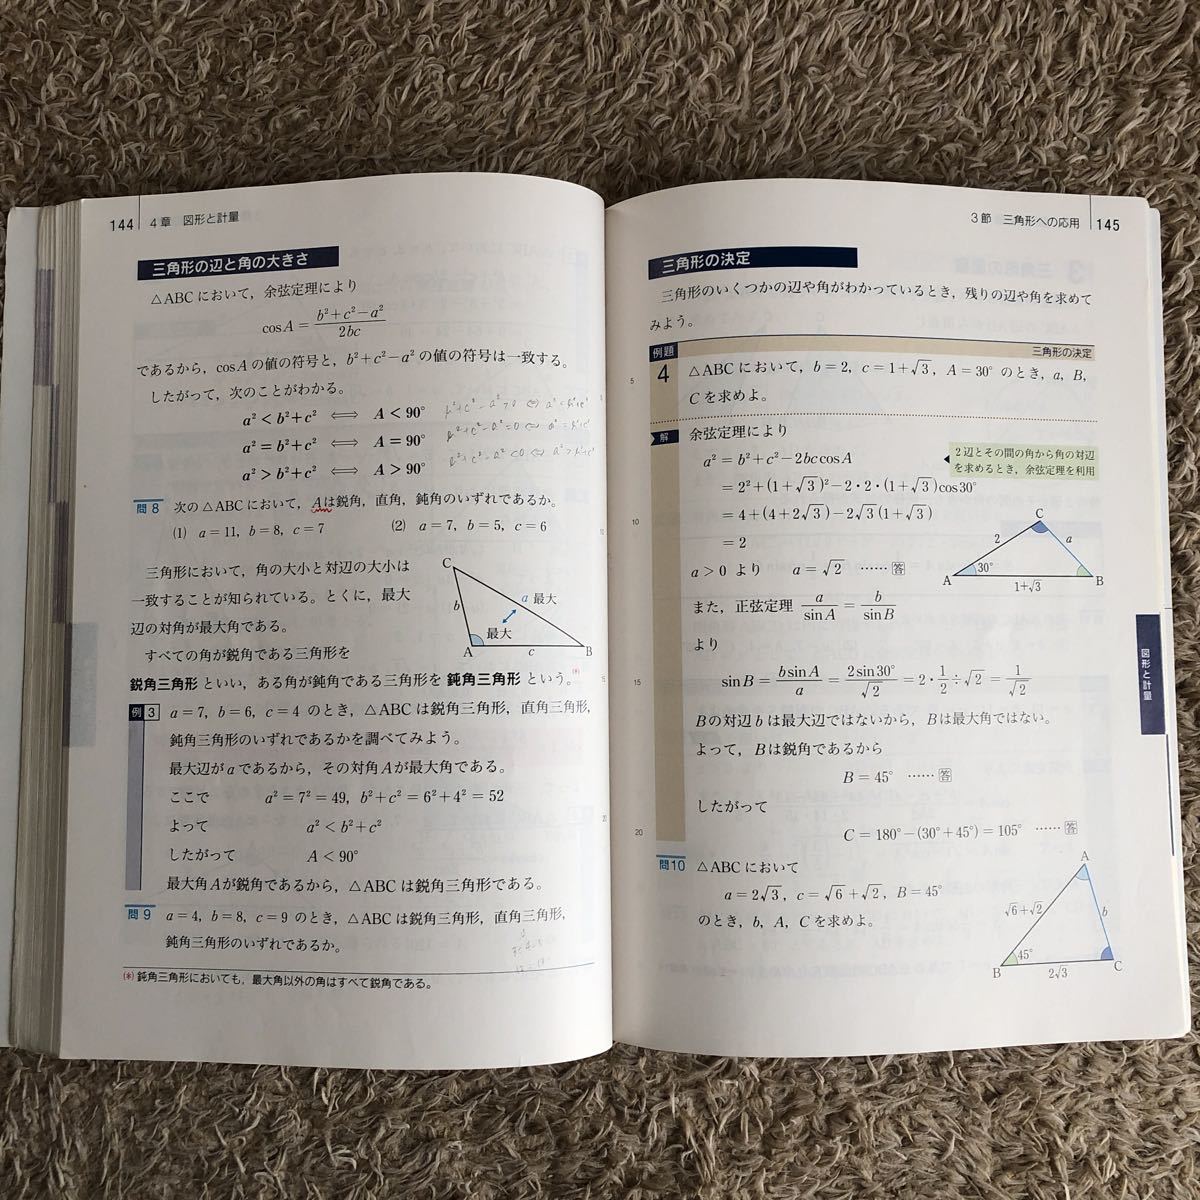 144 4章 図形と計量
三角形の辺と角の大きさ
△ABCにおいて，余弦定理により
cosA = (b²+c²−a²)/2bc
であるから，cosAの値の符号と，b²+c²−a²の値の符号は一致する。
したがって，次のことがわかる。
a² < b²+c² ⟺ A < 90°
a² = b²+c² ⟺ A = 90°
a² > b²+c² ⟺ A > 90°
問8 次の△ABCにおいて，Aは鋭角，直角，鈍角のいずれであるか。
(1) a=11, b=8, c=7 (2) a=7, b=5, c=6
三角形において，角の大小と対辺の大小は
一致することが知られている。とくに，最大
辺の対角が最大角である。
すべての角が鋭角である三角形を
鋭角三角形といい，ある角が鈍角である三角形を 鈍角三角形 という。(*)
C
b
a 最大
最大
A
c
B
例3 a=7, b=6, c=4 のとき，△ABCは鋭角三角形，直角三角形，
鈍角三角形のいずれであるかを調べてみよう。
最大辺がaであるから，その対角Aが最大角である。
ここで a² = 7² = 49, b²+c² = 6²+4² = 52
よって a² < b²+c²
したがって A < 90°
最大角Aが鋭角であるから，△ABCは鋭角三角形である。
問9 a=4, b=8, c=9 のとき，△ABCは鋭角三角形，直角三角形，
鈍角三角形のいずれであるか。
(*) 鈍角三角形においても，最大角以外の角はすべて鋭角である。
3節 三角形への応用 145
三角形の決定
三角形のいくつかの辺や角がわかっているとき，残りの辺や角を求めて
みよう。
例題 三角形の決定
4 △ABCにおいて，b=2, c=1+√3, A=30° のとき，a, B,
Cを求めよ。
5
解 余弦定理により
a² = b²+c²−2bc cosA
= 2²+(1+√3)²−2・2・(1+√3)cos30°
= 4+(4+2√3)−2√3(1+√3)
= 2
2辺とその間の角から角の対辺
を求めるとき，余弦定理を利用
10
a>0 より a=√2 ……答
C
2
a
A
30°
1+√3
B
また，正弦定理 a/sinA = b/sinB
より
sinB = bsinA/a = 2sin30°/√2 = 2・1/2÷√2 = 1/√2
15
Bの対辺bは最大辺ではないから，Bは最大角ではない。
よって，Bは鋭角であるから
B = 45° ……答
したがって
C = 180°−(30°+45°) = 105° ……答
20
問10 △ABCにおいて
a=2√3, c=√6+√2, B=45°
のとき，b, A, Cを求めよ。
A
√6+√2
b
B
45°
2√3
C
図形と計量